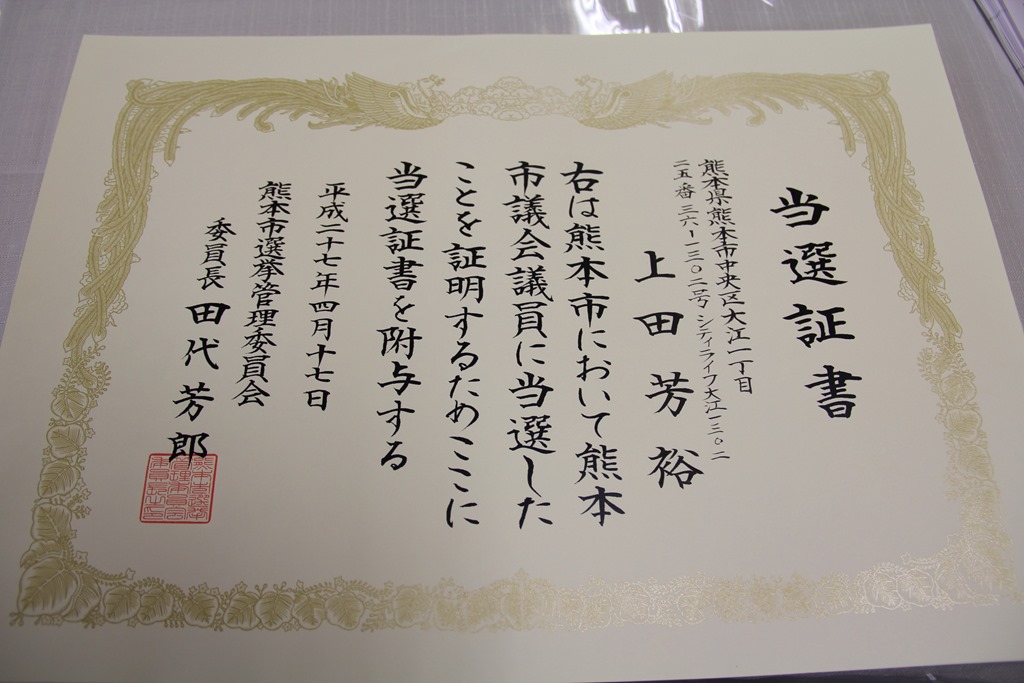 当選証書
熊本県熊本市中央区大江一丁目
二五番三六ー一三〇二号 シティライフ大江一三〇二
上田芳裕
右は熊本市において熊本
市議会議員に当選した
ことを証明するためここに
当選証書を附与する
平成二十七年四月十七日
熊本市選挙管理委員会
委員長 田代芳郎